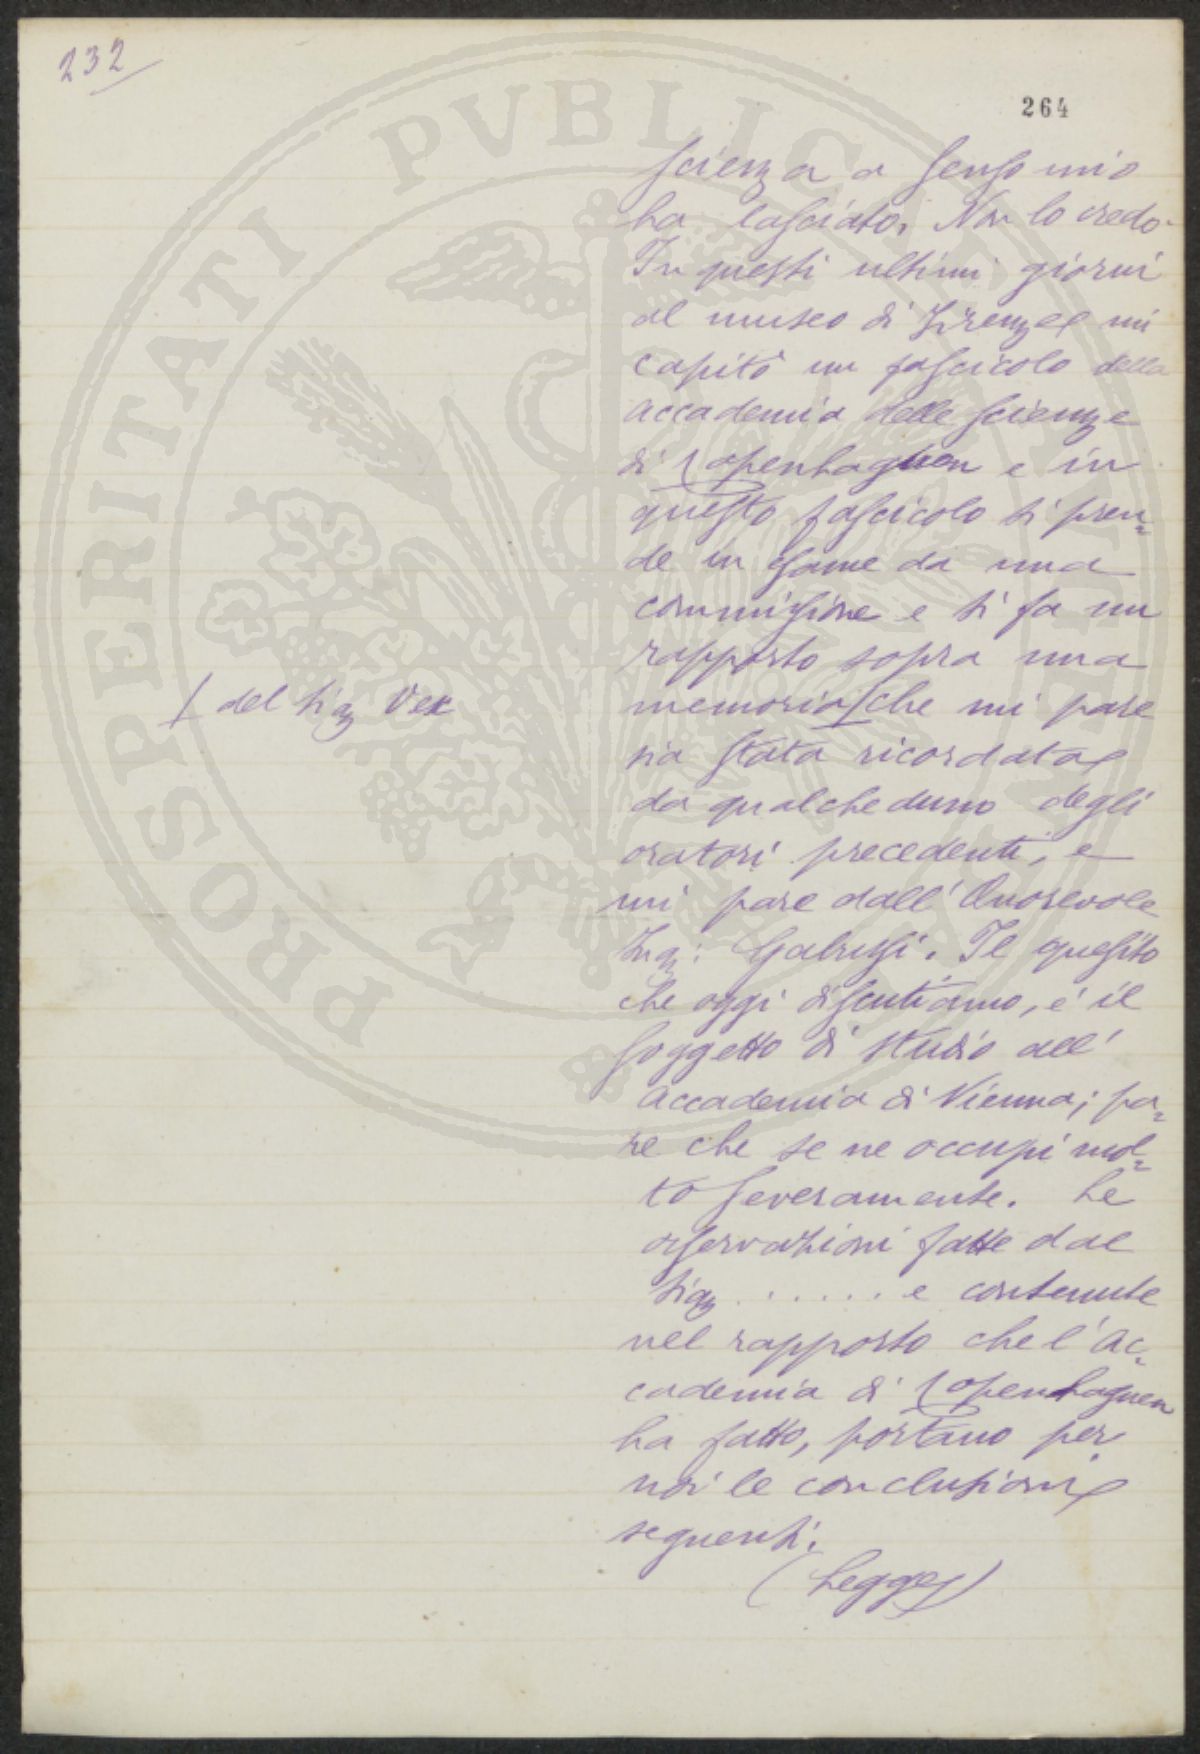 232
264
scienza a senso mio
ha lasciato. Non lo credo.
In questi ultimi giorni
al museo di Firenze mi
capitò un fascicolo della
accademia delle scienze
di Copenhaguen e in
questo fascicolo si pren=
de in esame da una
commissione e si fa un
rapporto sopra una
memoria / che mi pare
/ del sig Vex
sia stata ricordata
da qualcheduno degli
oratori precedenti, e
mi pare dall' Onorevole
Ing: Gabussi. Il quesito
che oggi discutiamo, é il
soggetto di studio all'
accademia di Vienna; pa=
re che se ne occupi mol=
to severamente. Le
osservazioni fatte dal
sig ...... e contenute
nel rapporto che l'Ac=
cademia di Copenhaguen
ha fatto, portano per
noi le conclusioni
seguenti.
(Legge)
PROSPERITATI PVBLICAE